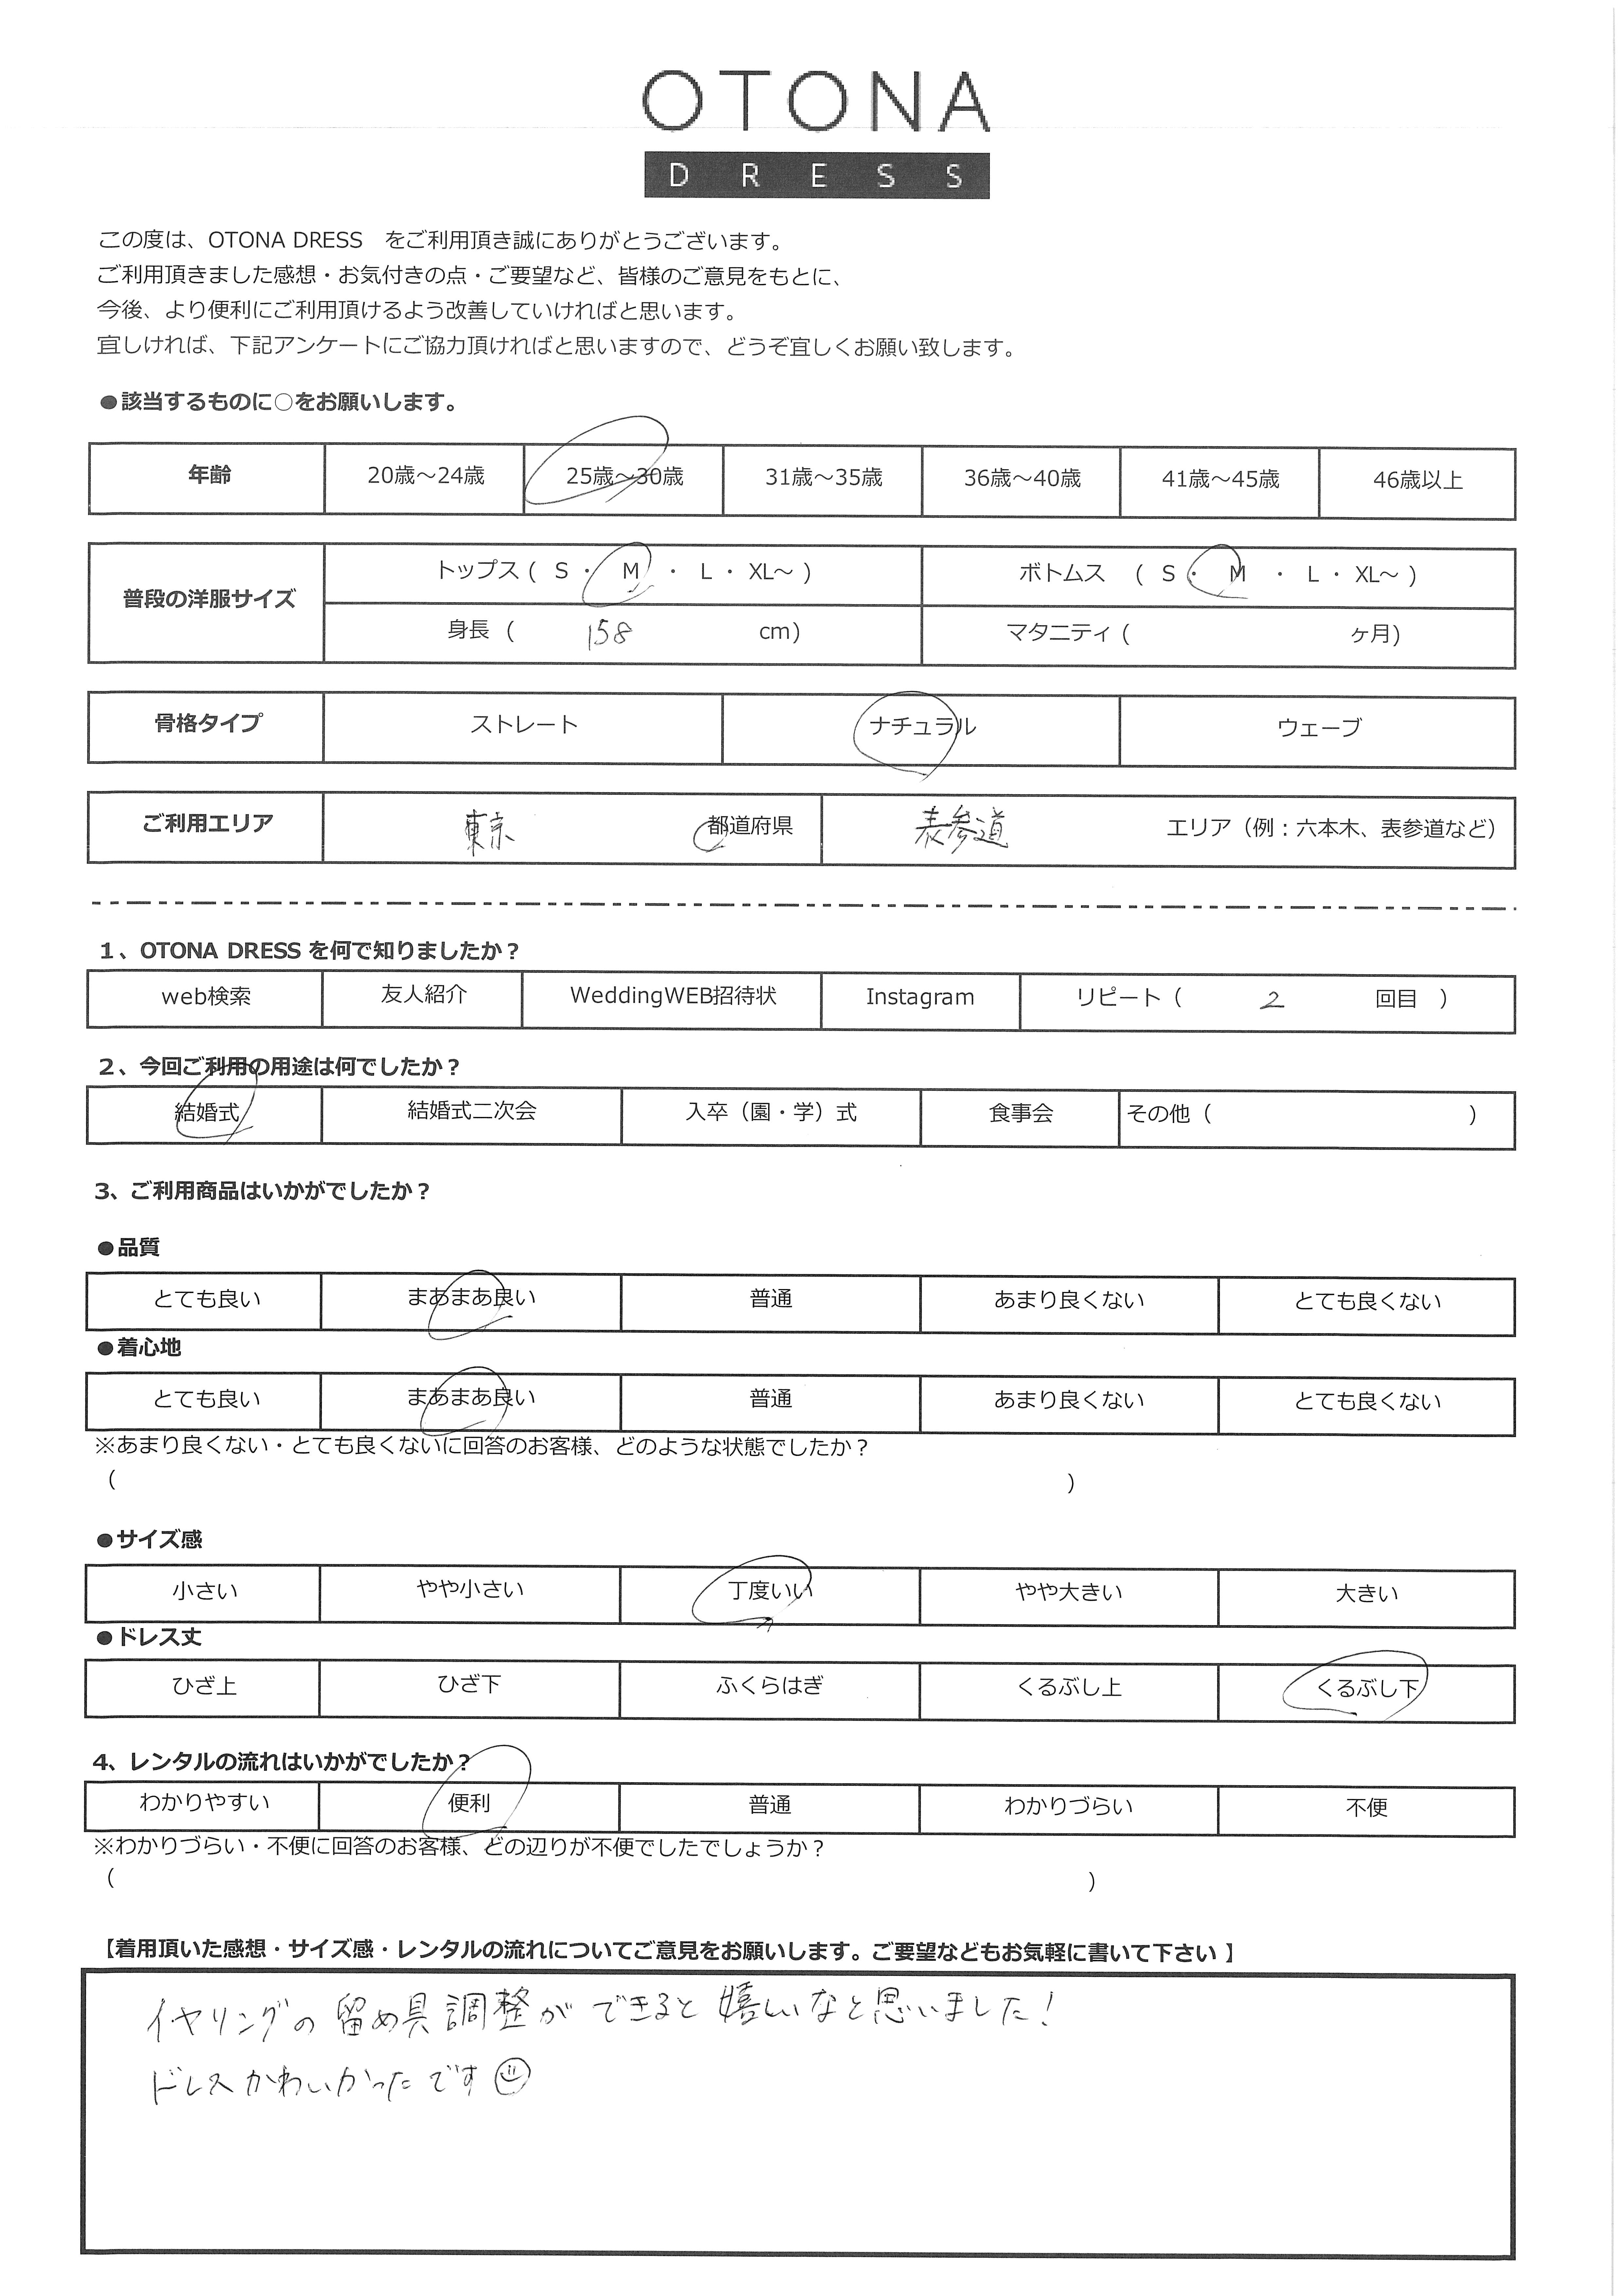 OTONA
DRESS
この度は、OTONA DRESS をご利用頂き誠にありがとうございます。
ご利用頂きました感想・お気付きの点・ご要望など、皆様のご意見をもとに、
今後、より便利にご利用頂けるよう改善していければと思います。
宜しければ、下記アンケートにご協力頂ければと思いますので、どうぞ宜しくお願い致します。
●該当するものに○をお願いします。
年齢 20歳～24歳 25歳～30歳 31歳～35歳 36歳～40歳 41歳～45歳 46歳以上
普段の洋服サイズ トップス ( S ・ M ・ L ・ XL～ ) ボトムス ( S ・ M ・ L ・ XL～ )
身長 ( 158 cm) マタニティ ( ヶ月)
骨格タイプ ストレート ナチュラル ウェーブ
ご利用エリア 東京 都道府県 表参道 エリア（例：六本木、表参道など）
1、OTONA DRESS を何で知りましたか？
web検索 友人紹介 WeddingWEB招待状 Instagram リピート（ 2 回目 ）
2、今回ご利用の用途は何でしたか？
結婚式 結婚式二次会 入卒（園・学）式 食事会 その他（ ）
3、ご利用商品はいかがでしたか？
●品質
とても良い まあまあ良い 普通 あまり良くない とても良くない
●着心地
とても良い まあまあ良い 普通 あまり良くない とても良くない
※あまり良くない・とても良くないに回答のお客様、どのような状態でしたか？
（ ）
●サイズ感
小さい やや小さい 丁度いい やや大きい 大きい
●ドレス丈
ひざ上 ひざ下 ふくらはぎ くるぶし上 くるぶし下
4、レンタルの流れはいかがでしたか？
わかりやすい 便利 普通 わかりづらい 不便
※わかりづらい・不便に回答のお客様、どの辺りが不便でしたでしょうか？
（ ）
【着用頂いた感想・サイズ感・レンタルの流れについてご意見をお願いします。ご要望などもお気軽に書いて下さい 】
イヤリングの留め具調整ができると嬉しいなと思いました！
ドレスかわいかったです☺